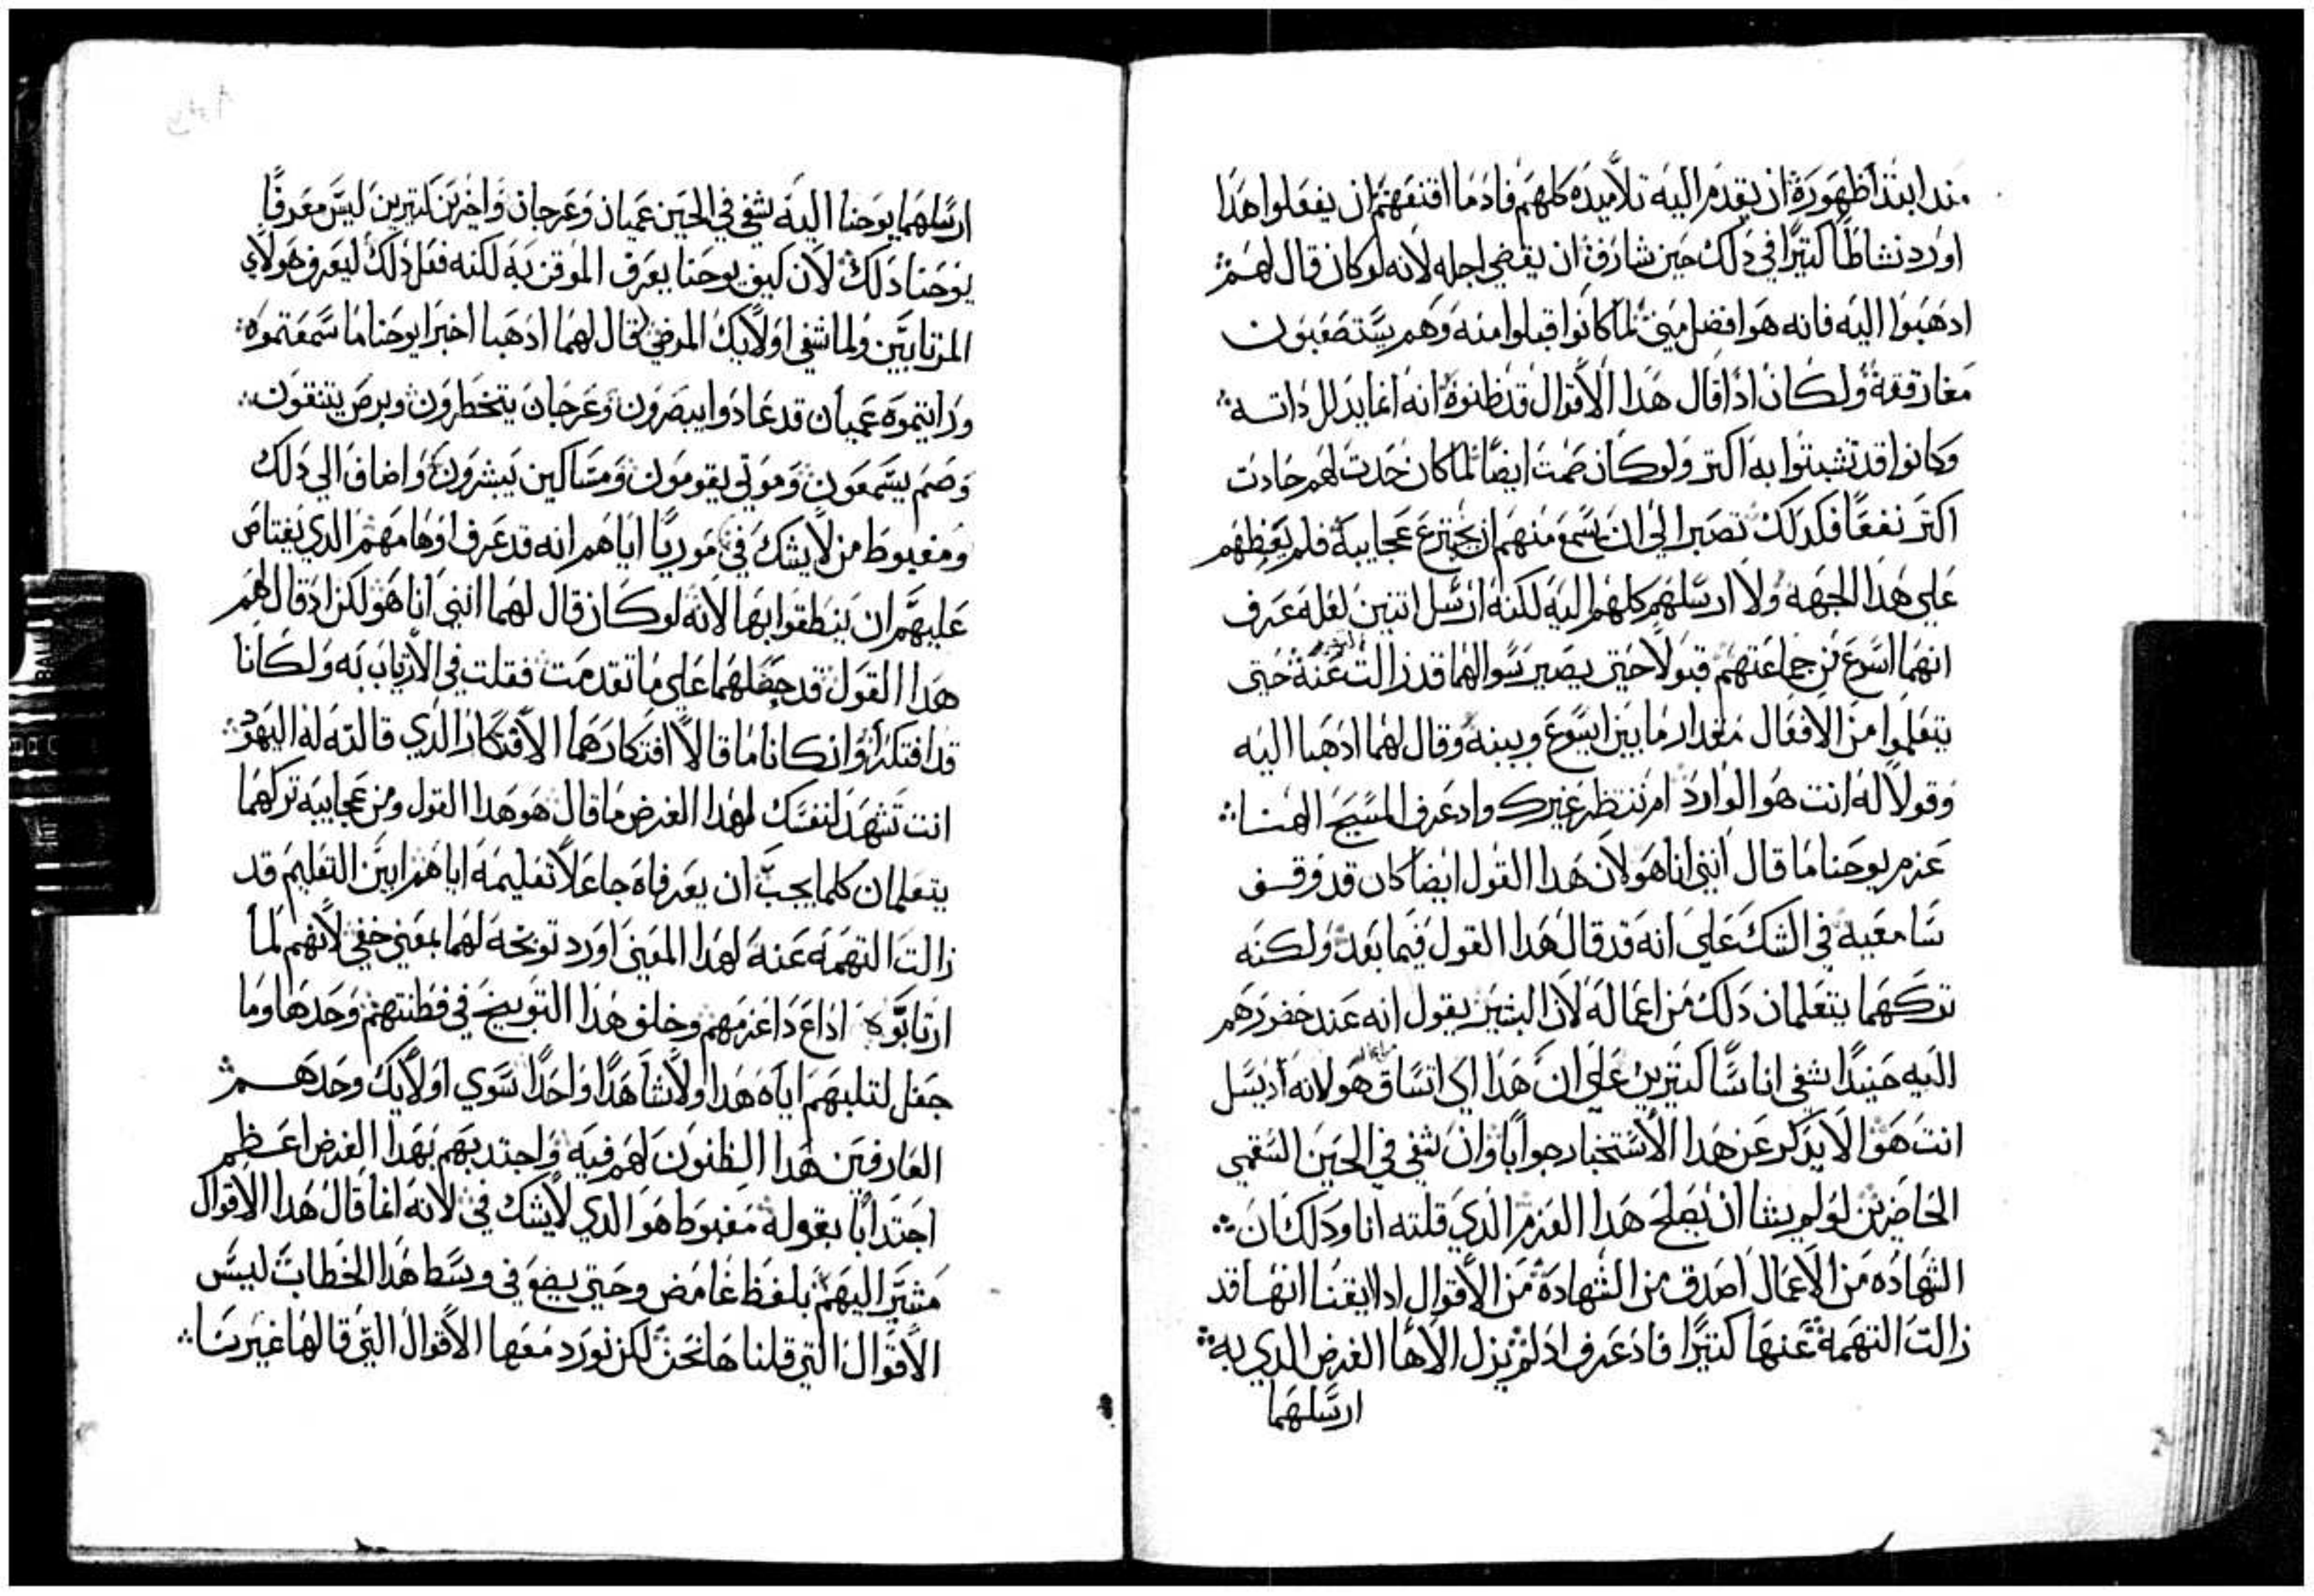 مند ابتدا ظهوره ان يقدم اليه تلاميده كلهم فادما اقنعهم ان يفعلوا هدا
اورد نشاطا كتيرا في دلك حين شارف ان يقضي اجله لانه لو كان قال لهم
ادهبوا اليه فانه هو افضل مني لما كانوا قبلوا منه وهم يستصعبون
مفارقته ولكان ادا قال هدا الاقوال قد ظنوه انه انما يدلل داته
وكانوا قد تشبتوا به اكتر ولو كان صمت ايضا لما كان حدت لهم حادت
اكتر نفعا فكدلك تصبر الي ان يسمع منهم ان يجترع عجايبه فلم يعظهم
علي هدا الجهه ولا ارسلهم كلهم اليه لكنه ارسل اتنين لعله عرف
انهما اسرع من جماعتهم قبولا حتي يصير سوالهما قد زالت عنه حتي
يتعلموا من الافعال مقدار ما بين ايسوع وبينه وقال لهما ادهبا اليه
وقولا له انت هو الوارد ام ننتظر غيرك واد عرف المسيح الهنا
عزم يوحنا ما قال انني انا هو لان هدا القول ايضا كان قد وقف
سامعيه في الشك علي انه قد قال هدا القول فيما بعد ولكنه
تركهما يتعلمان دلك من اعماله لان البشير يقول انه عند حضورهم
اليه حنيدا شفي اناسا كتيرين علي ان هدا اي اتساق هو لانه اد يسل
انت هو الا يدكر عن هدا الاستخبار جوابا وان شفي في الحين السقمي
الحاضرين لو لم يشا ان يصلح هدا العزم الدي قلته انا ودلك ان
الشهاده من الاعمال اصدق من الشهادة من الاقوال اد ايقنا انها قد
زالت التهمة عنها كتيرا فاد عرف اد لم يزل الاها الغرض الدي به
ارسلهما
ارسلهما يوحنا اليه شفي في الحين عميان وعرجان واخرين كتيرين ليس معرفا
يوحنا دلك لان كيف يوحنا يعرف الموقن به لكنه فعل دلك ليعرف هولاي
المرتابين ولما شفي اولايك المرضي قال لهما ادهبا اخبرا يوحنا ما سمعتموه
ورايتموه عميان قد عادوا يبصرون وعرجان يتخطرون وبرص يتنقون
وصم يسمعون وموتي يقومون ومساكين يبشرون واضاف الي دلك
ومغبوط من لا يشك في موريا اياهم انه قد عرف اوهامهم الدي يعتاص
عليهم ان ينطقوا بها لانه لو كان قال لهما انني انا هو لكن اد قال لهم
هدا القول قد حصلهما علي ما تقدمت فقلت في الارتياب به ولكانا
قد افتكرا وان كانا ما قالا افتكارهما الافتكار الدي قالته له اليهود
انت تشهد لنفسك لهدا الغرض ما قال هو هدا القول ومن عجايبه تركهما
يتعلمان كلما يجب ان يعرفاه جاعلا تعليمه اياهم ابين التعليم قد
زالت التهمه عنه لهدا المعني اورد توبيخه لهما بمعني خفي لانهم لما
ارتابوه اداع دا عزمهم وخلف هدا التوبيخ في فطنتهم وحدها وما
جعل لتلبهم اياه هدا ولا شاهدا واحدا سوي اولايك وحدهم
العارفين هدا الظنون لهم فيه واجتدبهم بهدا الغرض اعظم
اجتدابا بقوله مغبوط هو الدي لا يشك في لانه انما قال هدا الاقوال
مشيرا اليهم بلفظ غامض وحتي يضع في وسط هدا الخطاب ليس
الاقوال التي قلناها نحن لكن نورد معها الاقوال التي قالها غيرنا